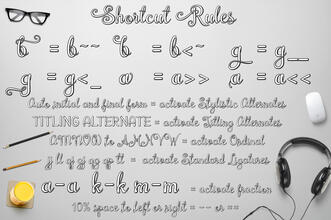 Shortcut Rules
b = b~~ b = b<~ g = g__
g = g<_ a = a>> a = a<<
Auto initial and final form = activate Stylistic Alternates
TITLING ALTERNATE = activate Titling Alternates
= activate Ordinal
= activate Standard Ligatures
a-a k-k m-m = activate fraction
10% space to left or right = -- or ==